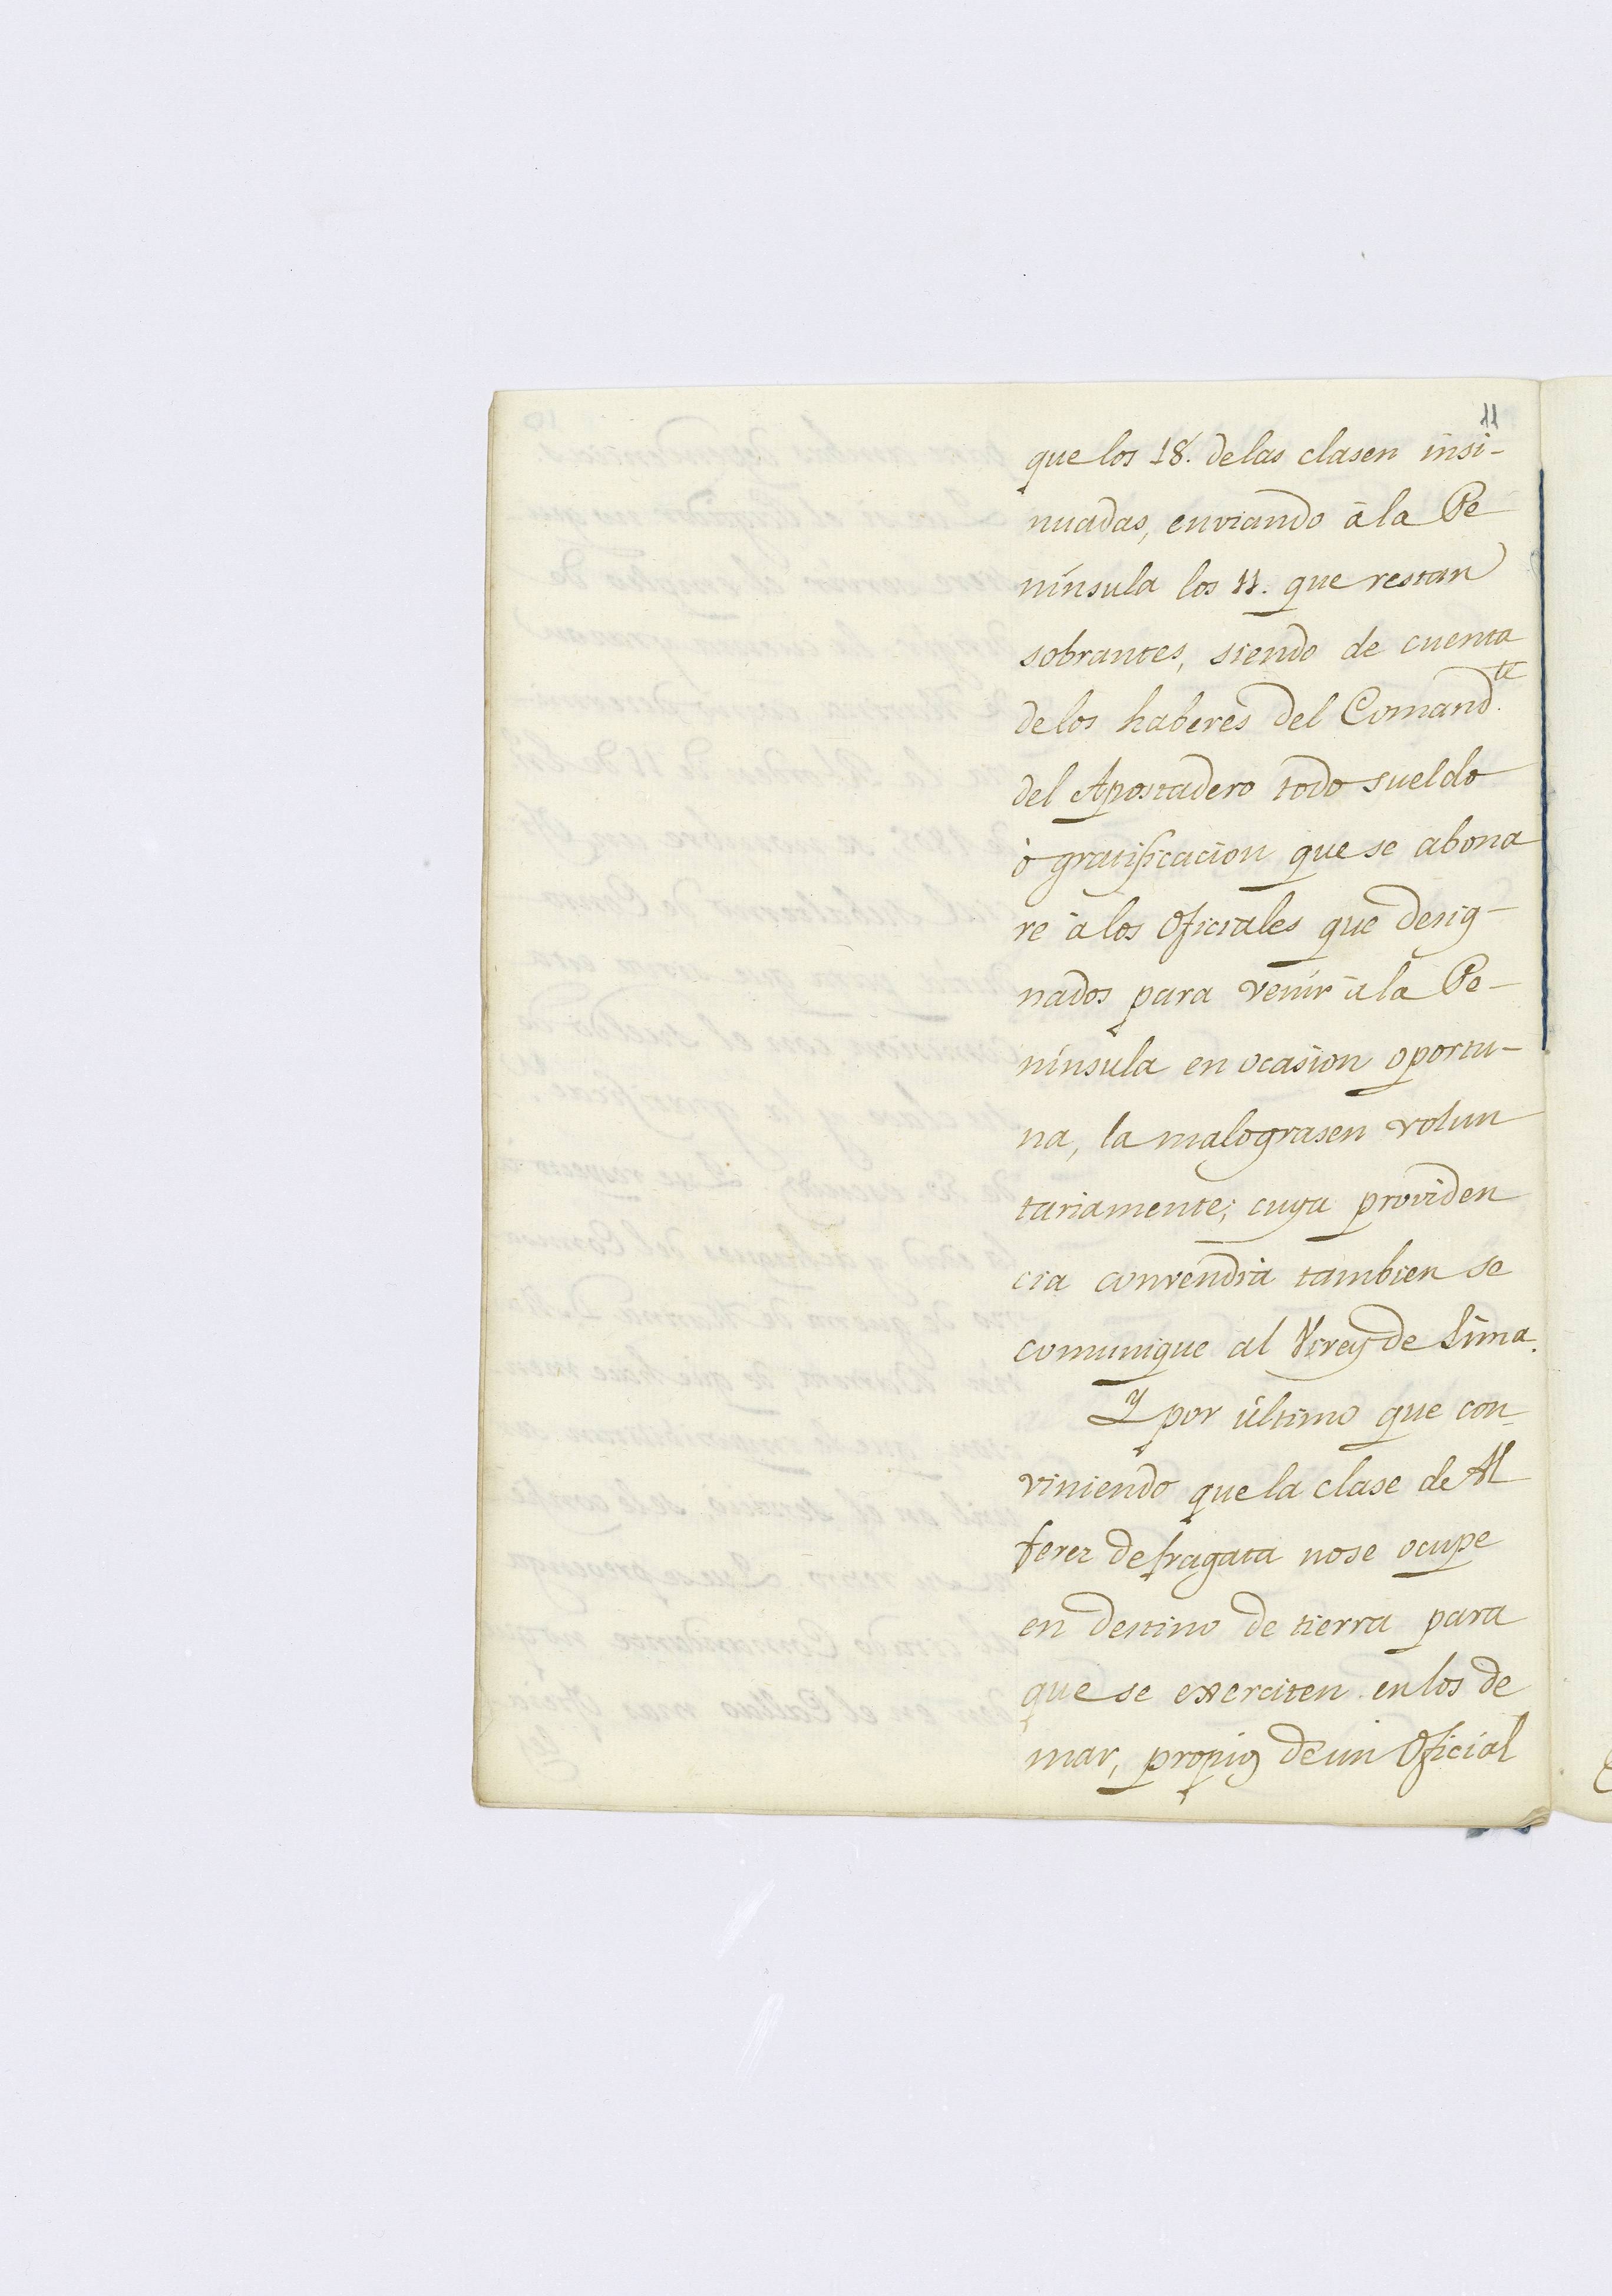 11
que los 18. delas clasen insi-
nuadas, enviando à la Pe
nínsula los 11. que restan
sobrantes, siendo de cuenta
delos haberes del Comand.te
del Apostadero todo sueldo
ò gratificacion que se abona
re à los Oficiales que desig-
nados para venir à la Pe-
nínsula en ocasion oportu-
na, la malograsen volun
tariamente; cuya providen
cia convendrá tambien se
comunique al Virey de Lima.
Y por último que con-
viniendo que la clase de Al
ferez defragata nose ocupe
en destino de tierra para
que se exerciten enlos de
mar, propios de un Oficial